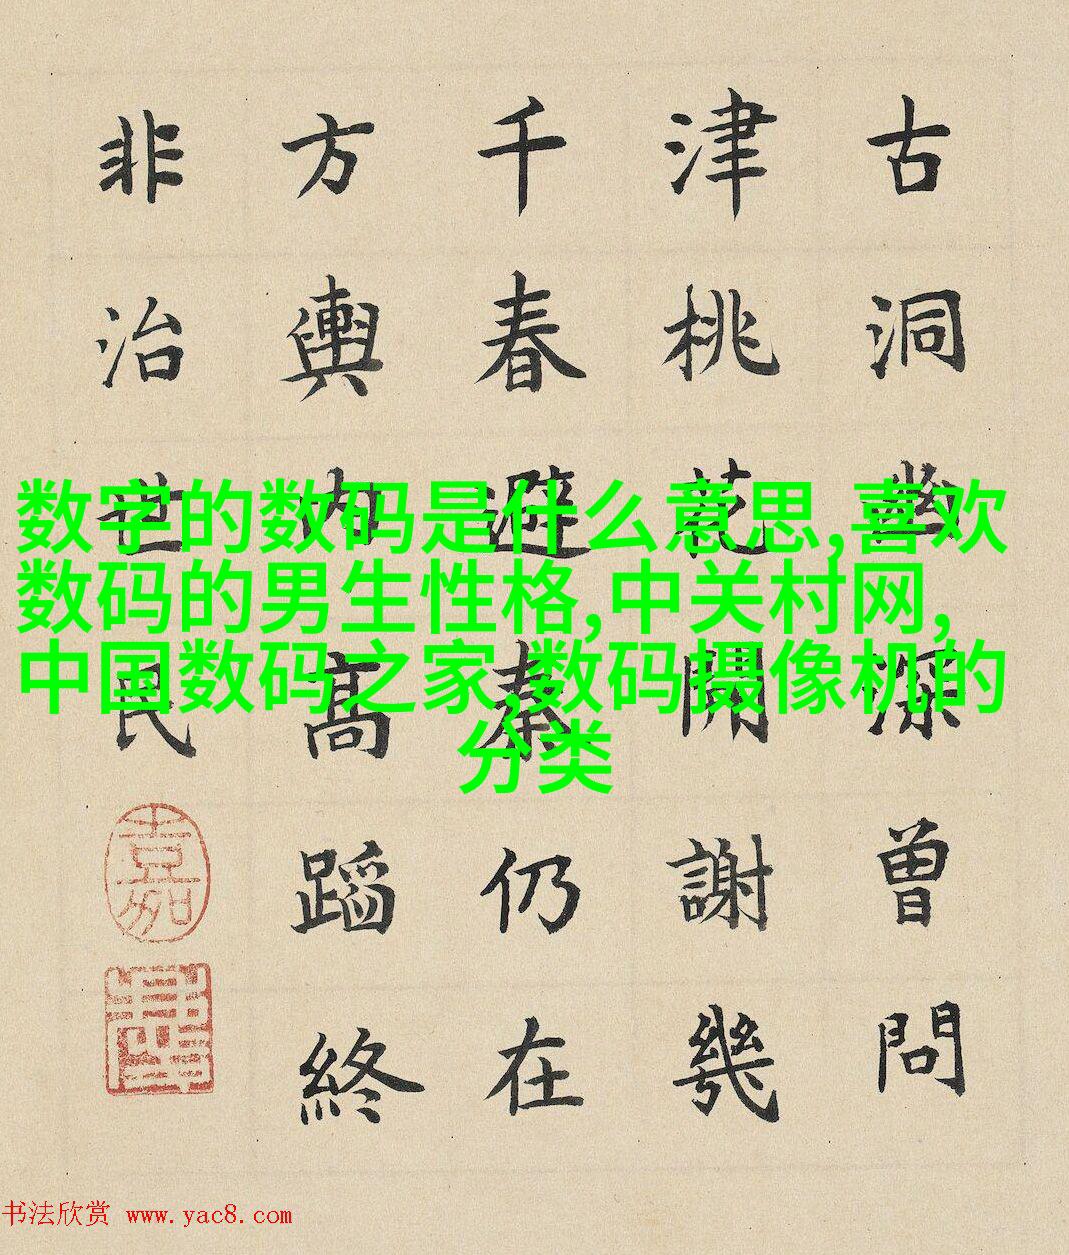 古洞幽深曾問
津桃花開謝幾
千春避秦仍在
方輿內高蹈終
非治世民
嘉
数字的数码是什么意思,喜欢
数码的男生性格,中关村网,
中国数码之家,数码摄像机的
分类
书法欣赏 www.yac8.com